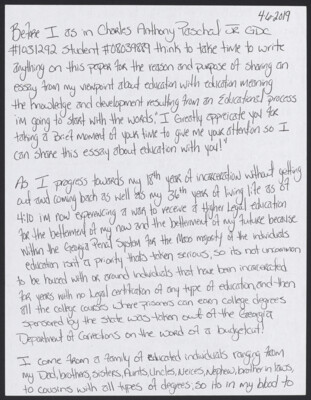 4-6-2019
Before I as in Charles Anthony Paschal Jr GDC
#1231292 Student #08039889 think to take time to write
anything on this paper for the reason and purpose of sharing an
essay from my viewpoint about education with education meaning
the knowledge and development resulting from an Educational process
im going to start with the words, "I Greatly appriciate you for
taking a brief moment of your time to give me your attention so I
can share this essay about education with you!"
As I progress towards my 18th year of incarceration without getting
out and coming back as well as my 36th year of living life as of
4:10 im now experiencing a want to receive a Higher Legal education
for the betterment of my now and the betterment of my future because
within the Georgia Penal System for the Mass majority of the individuals
education isn't a priority that's taken serious, so its not uncommon
to be housed with or around individuals that have been incarcerated
for years with no Legal certification of any type of education, and then
all the college courses where prisoners can earn college degrees
sponsored by the state was taken out of the Georgia
Department of Corrections on the word of a budget cut!
I come from a family of educated individuals ranging from
my Dad, brothers, sisters, Aunts, Uncles, Neices, Nephew, brother in laws,
to cousins with all types of degrees, so its in my blood to